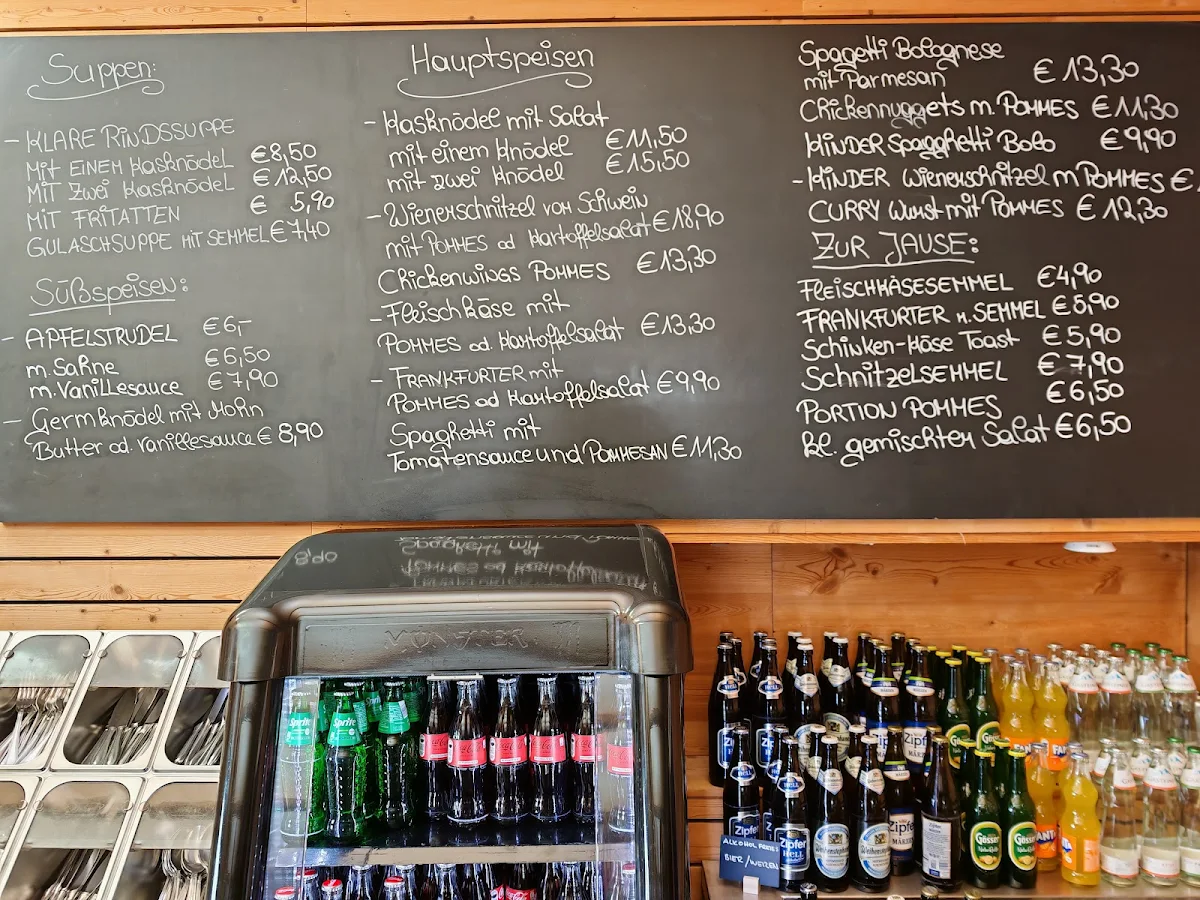 Suppen:
- KLARE RINDSSUPPE
MIT EINEM KASKNÖDEL €8,50
MIT ZWEI KASKNÖDEL €12,50
MIT FRITATTEN € 5,90
GULASCHSUPPE MIT SEMMEL €7,40
Süßspeisen:
- APFELSTRUDEL €6,-
m. Sahne €6,50
m. Vanillesauce €7,90
- Germknödel mit Mohn
Butter od. Vanillesauce €8,90
Hauptspeisen
- Kasknödel mit Salat
mit einem Knödel €11,50
mit zwei Knödel €15,50
- Wienerschnitzel vom Schwein
mit POMMES od Kartoffelsalat €18,90
Chickenwings POMMES €13,30
- Fleischkäse mit
POMMES od. Kartoffelsalat €13,30
- FRANKFURTER mit
POMMES od Kartoffelsalat €9,90
Spaghetti mit
Tomatensauce und POMMESAN €11,30
Spagetti Bolognese
mit Parmesan €13,30
Chickennuggets m. POMMES €11,30
KINDER Spagghetti Bolo €9,90
- KINDER Wienerschnitzel m POMMES €
CURRY Wurst mit POMMES €12,30
ZUR JAUSE:
FLEISCHKÄSESEMMEL €4,90
FRANKFURTER M. SEMMEL €5,90
Schinken-Käse Toast €5,90
SchnitzelSEMMEL €7,90
PORTION POMMES €6,50
Kl. gemischter Salat €6,50
Sprite
Coca-Cola
Zipfer
HELL
Zipfer
MÄRZEN
Weihenstephan
Gösser
Gösser
FANTA
ALKOHOLFREIES
BIER/WEIZEN